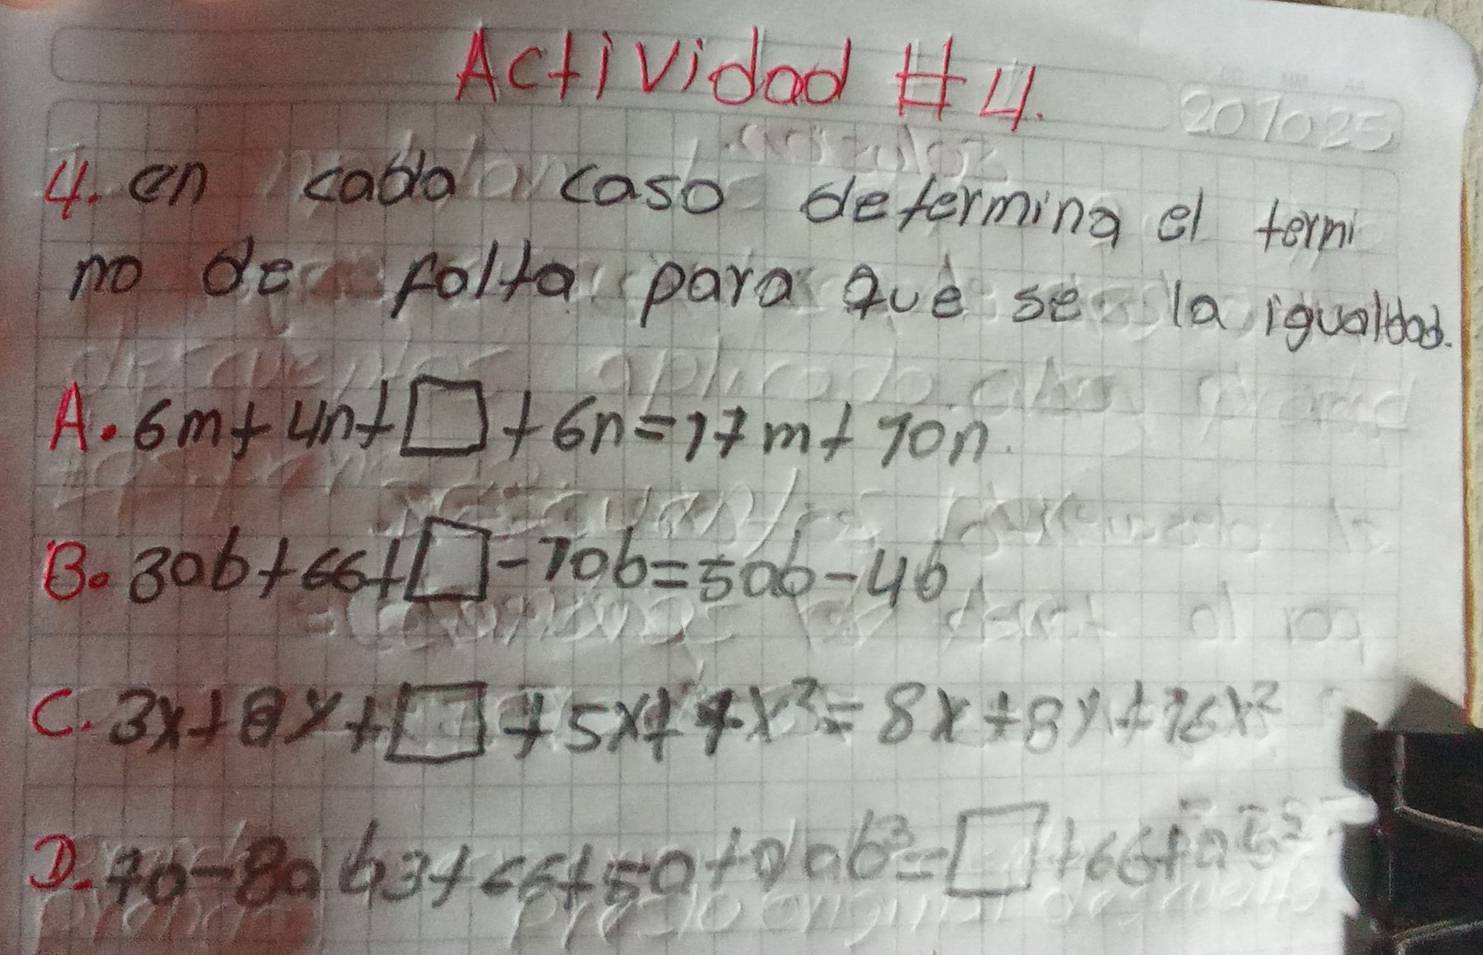 Actividad #4.
201025
4. en cada caso determina el termi
no de falta para que se la igualdad.
A. 6m+4n+□+6n=17m+10n.
B. 3ab+6b+□-10b=5ab-4b
C. 3x+8y+□+5x+7x²=8x+8y+16x²
D. 7a-8ab3+6b+5a+9ab³=□+6b+